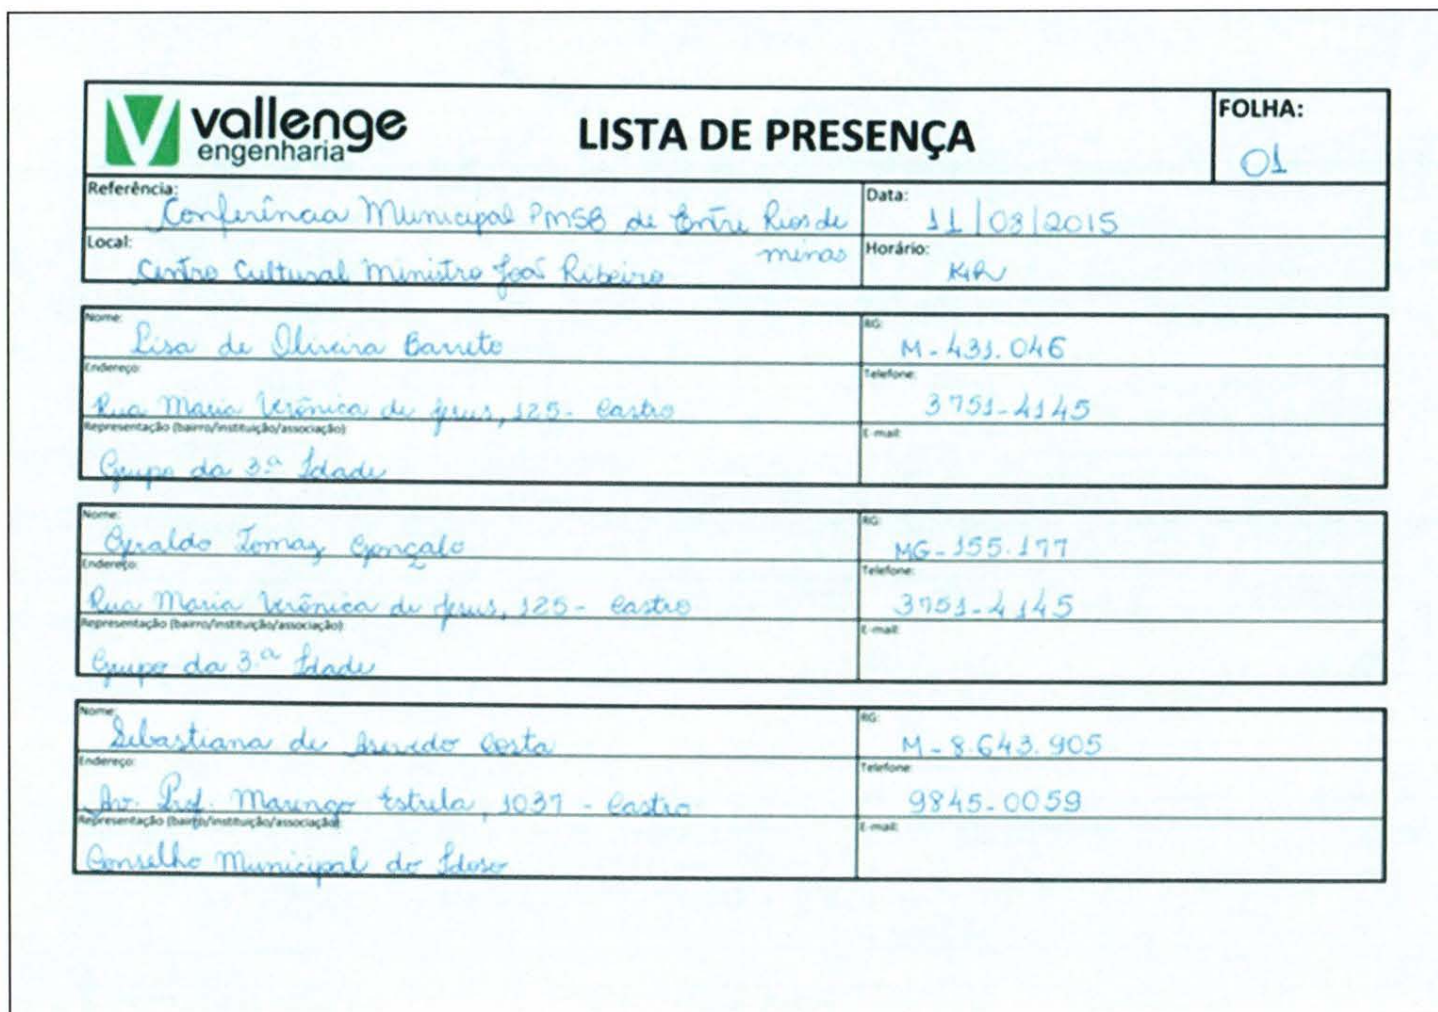 vallenge
engenharia
LISTA DE PRESENÇA
FOLHA:
01
Referência:
Conferência Municipal PMSB de Entre Rios de
minas
Data:
11/03/2015
Local:
Centro Cultural Ministro João Ribeiro
Horário:
Nome:
Lisa de Oliveira Barreto
RG:
M-431.046
Endereço:
Rua Maria Verônica de Jesus, 125 - Castro
Telefone:
3751-4145
Representação (bairro/instituição/associação):
Grupo da 3.ª Idade
E-mail:
Nome:
Geraldo Tomaz Gonçalo
RG:
MG-155.177
Endereço:
Rua Maria Verônica de Jesus, 125 - Castro
Telefone:
3751-4145
Representação (bairro/instituição/associação):
Grupo da 3.ª Idade
E-mail:
Nome:
Sebastiana de Azevedo Costa
RG:
M-8.643.905
Endereço:
Av. Prof. Marengo Estrela, 1037 - Castro
Telefone:
9845-0059
Representação (bairro/instituição/associação):
Conselho Municipal do Idoso
E-mail: